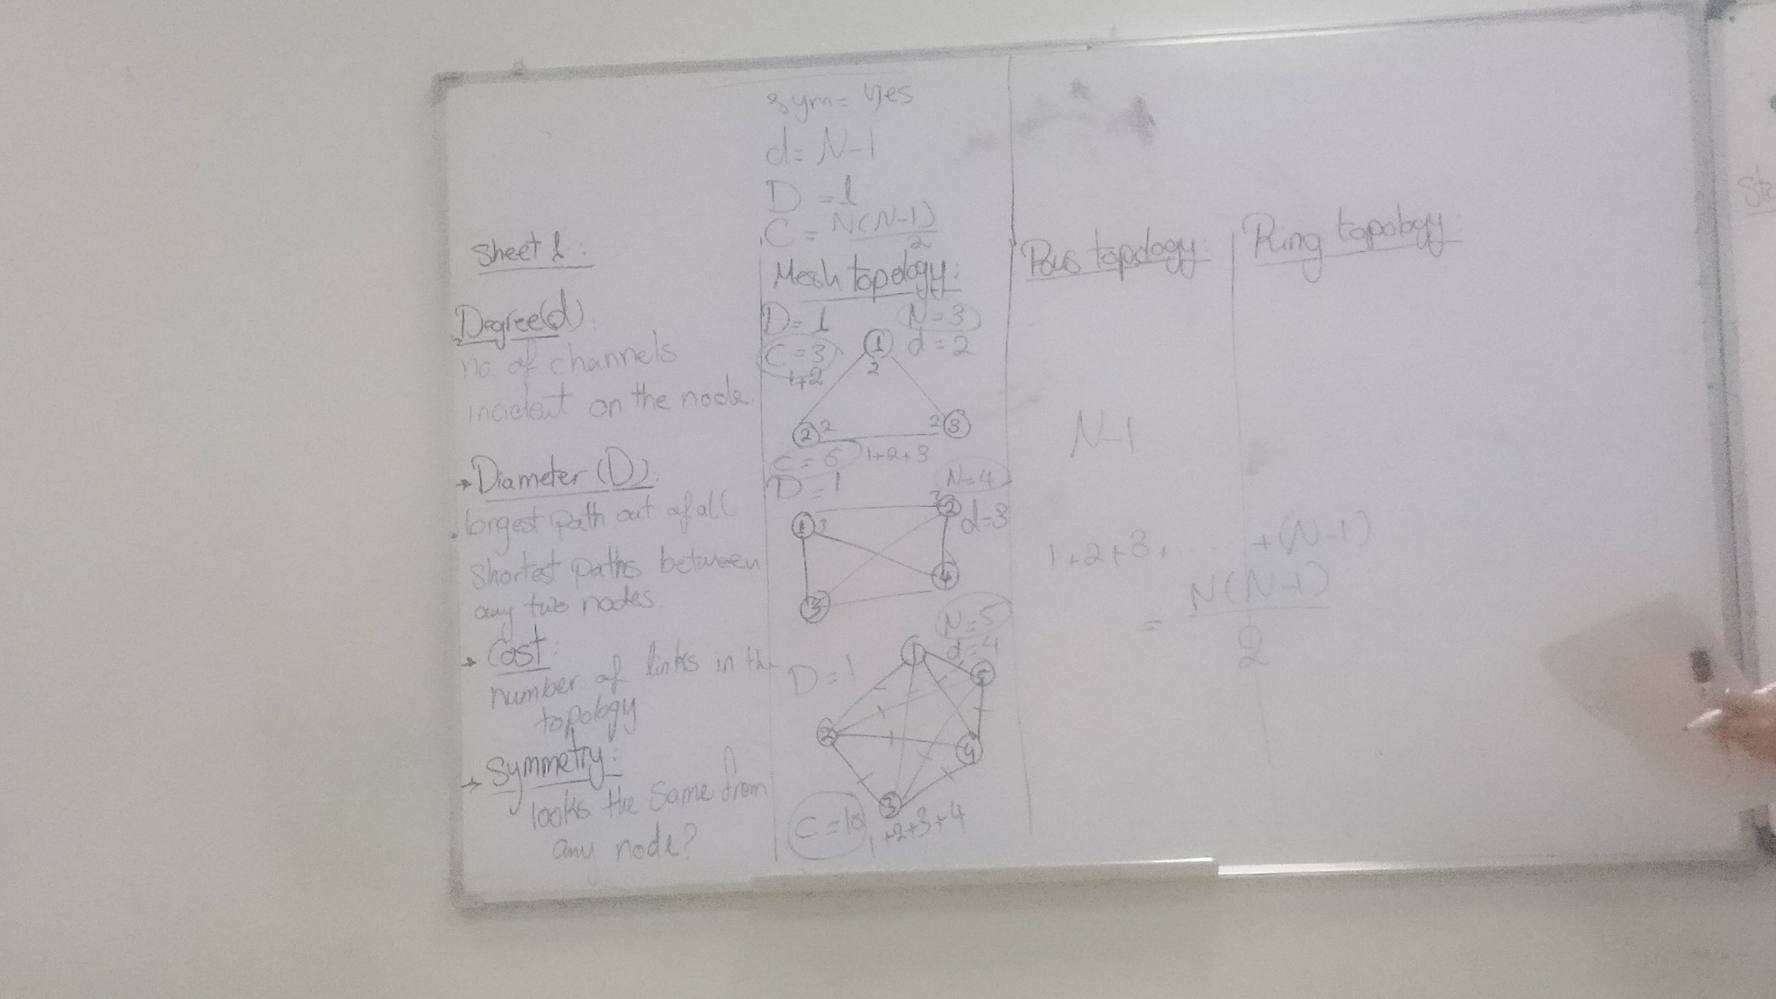 Sheet 1:
Degree(d):
no. of channels
incident on the node
→ Diameter (D).
longest path out of all
shortest paths between
any two nodes.
→ Cost:
number of links in the
topology
→ Symmetry:
looks the same from
any node?
sym = Yes
d = N-1
D = 1
C = N(N-1)
2
Mesh topology:
D = 1
N = 3
C = 3
d = 2
1+2
1
2
2 2
2 3
C = 6 1+2+3
D = 1
N = 4
1 3
3 2
d = 3
4
3
N = 5
d = 4
D = 1
1
5
2
4
3
C = 10
1+2+3+4
Bus topology:
N-1
1+2+3+ ... +(N-1)
= N(N-1)
2
Ring topology: